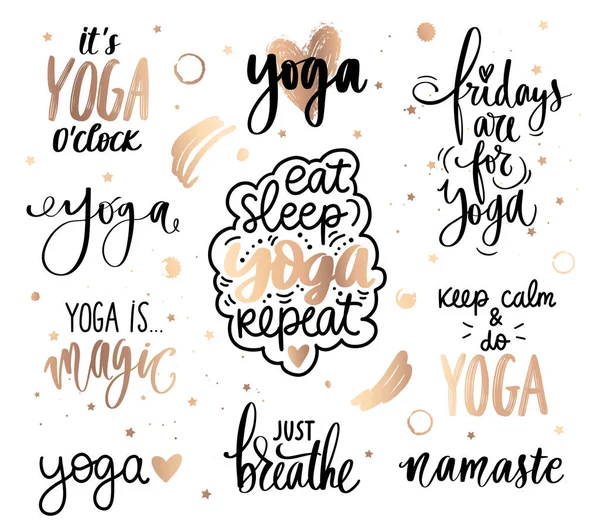 it's
YOGA
O'CLOCK
yoga
fridays
are
for
yoga
yoga
eat
sleep
yoga
repeat
YOGA IS...
magic
keep calm
&
do
YOGA
yoga
JUST
breathe
namaste